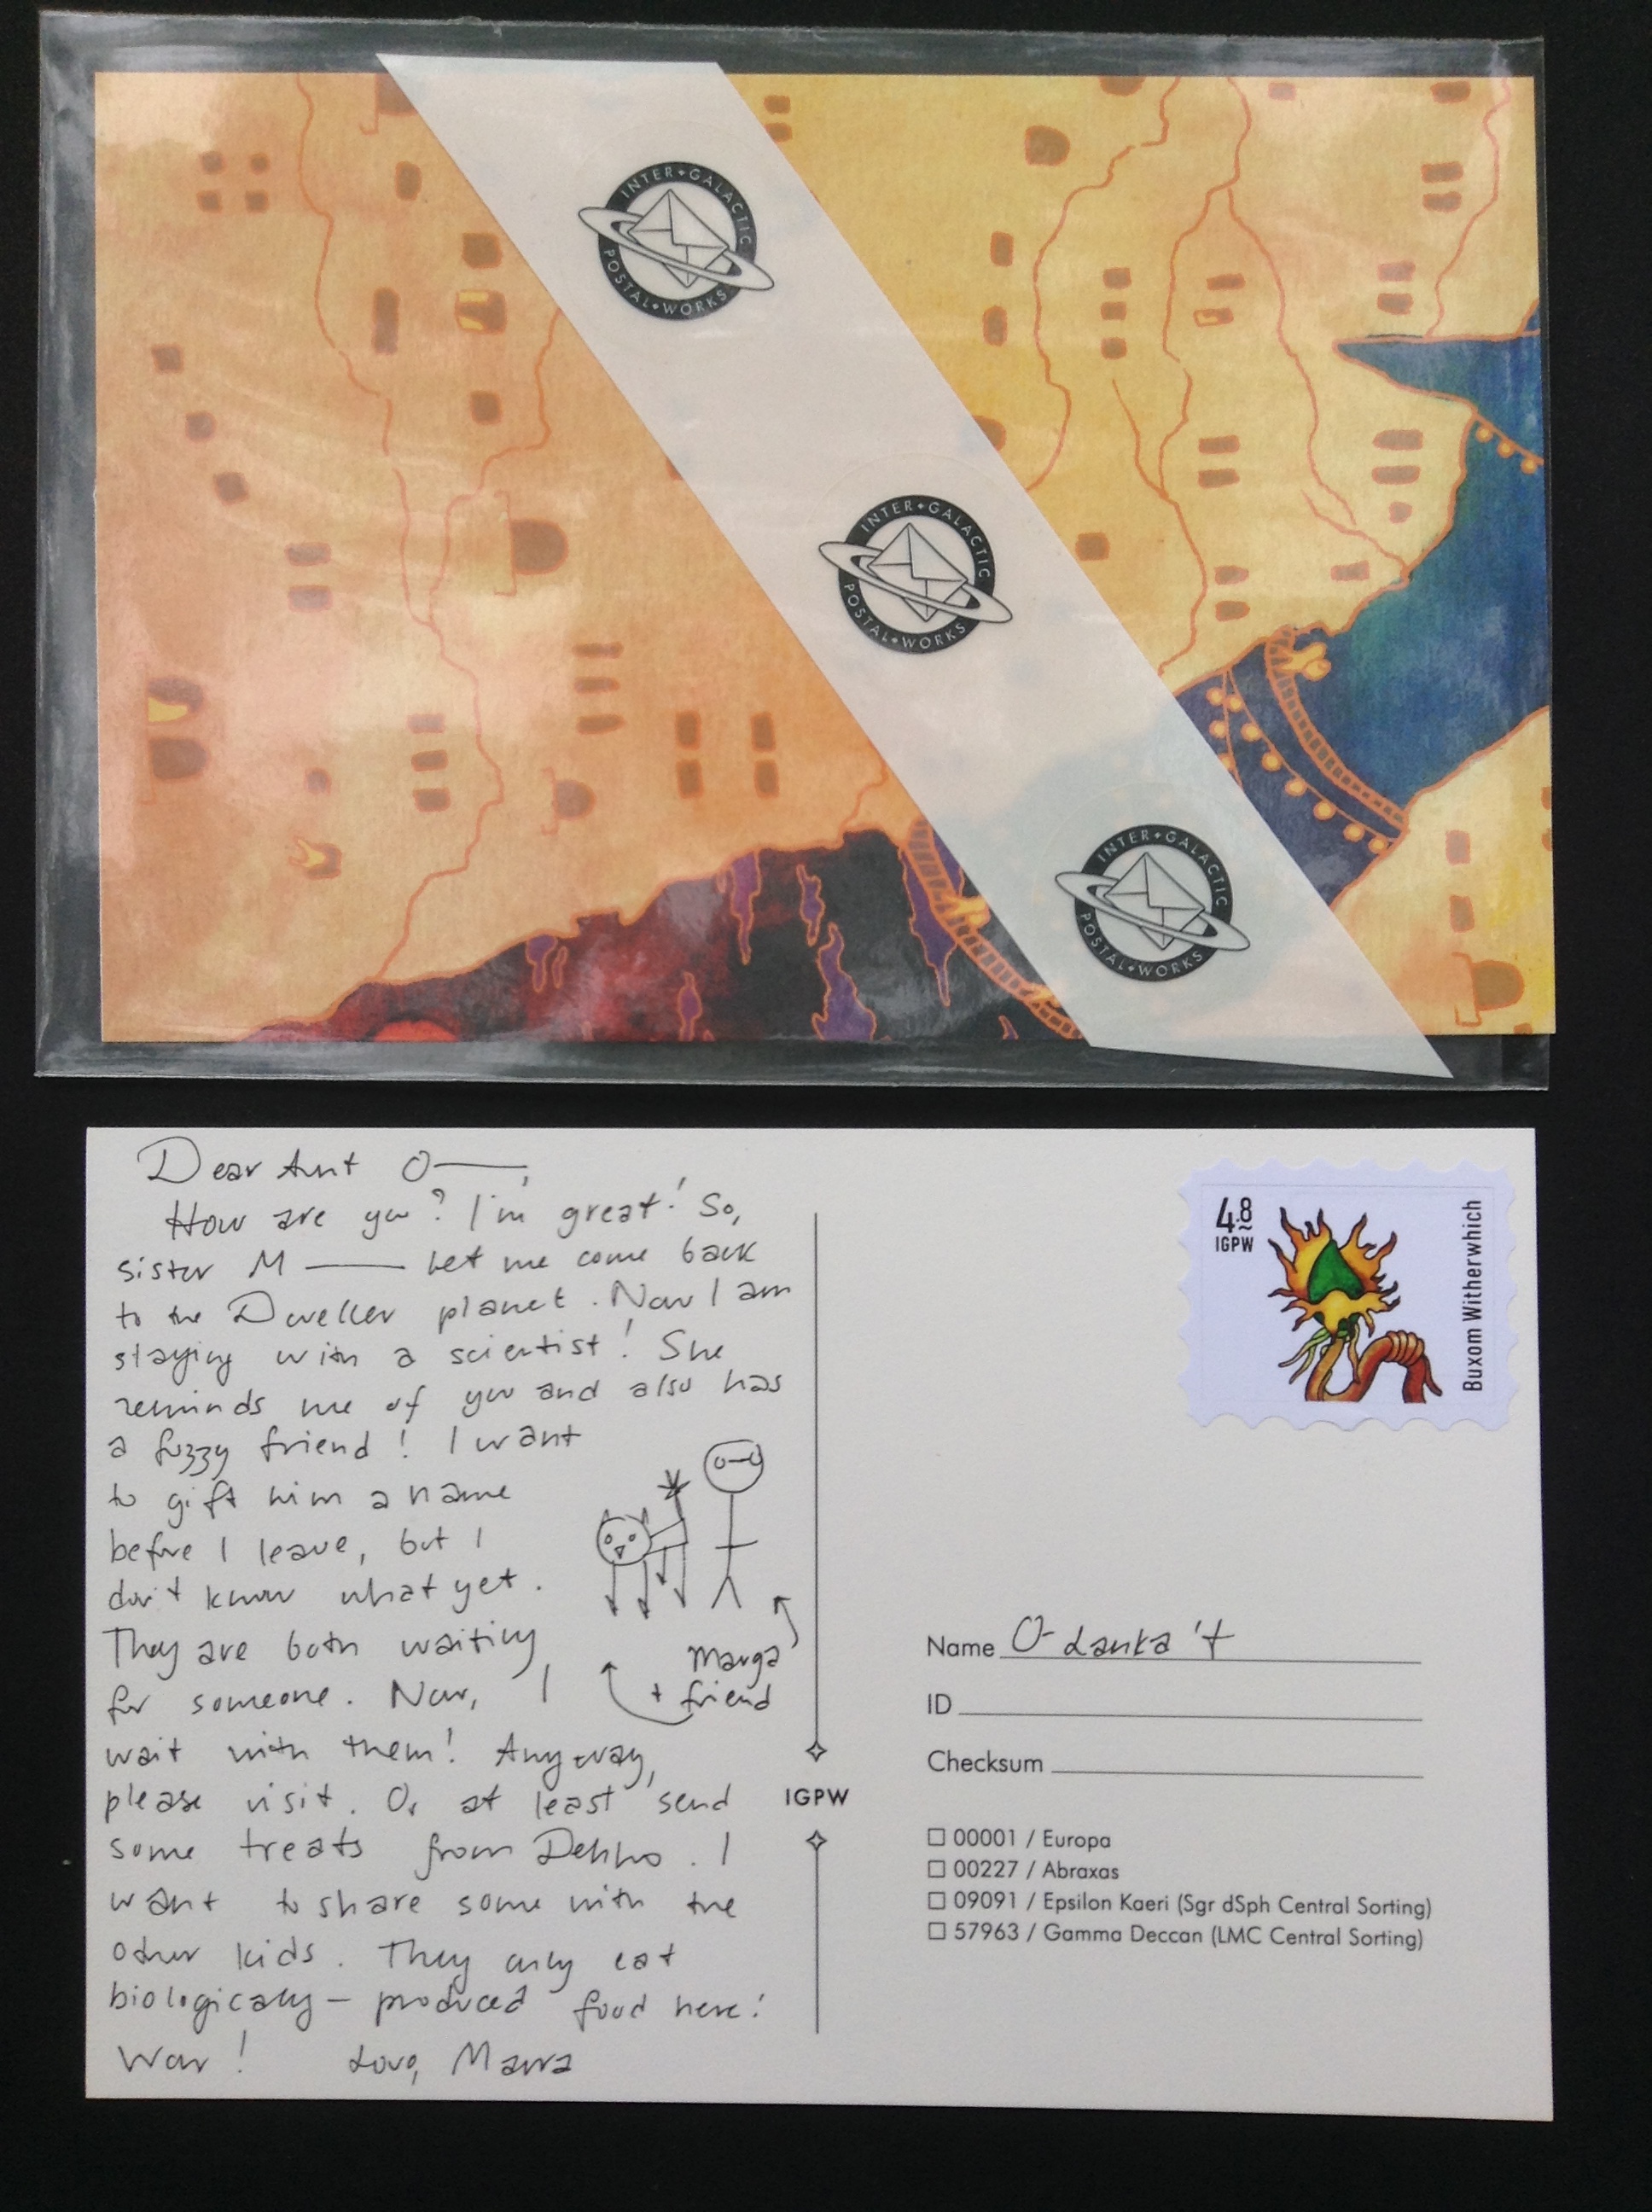 INTER✦GALACTIC POSTAL✦WORKS
INTER✦GALACTIC POSTAL✦WORKS
INTER✦GALACTIC POSTAL✦WORKS
Dear Aunt O——,
How are you? I'm great! So,
sister M —— let me come back
to the Dweller planet. Now I am
staying with a scientist! She
reminds me of you and also has
a fuzzy friend! I want
to gift him a name
before I leave, but I
don't know what yet.
They are both waiting
for someone. Now, I
wait with them! Anyway,
please visit. Or at least send
some treats from
I
want to share some with the
other kids. They only eat
biologically-produced food here!
Wow! Love,
Marga
+ friend
4.8
IGPW
Buxom Witherwhich
IGPW
Name O-Lanka't
ID
Checksum
00001 / Europa
00227 / Abraxas
09091 / Epsilon Kaeri (Sgr dSph Central Sorting)
57963 / Gamma Deccan (LMC Central Sorting)